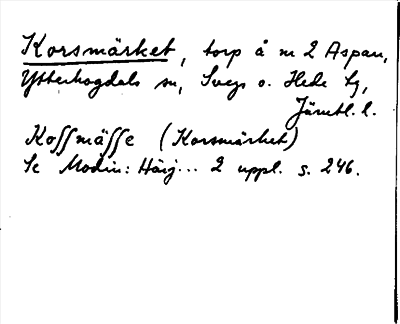 Korsmärket, torp å nr 2 Aspan,
Ytterhogdals sn, Svegs o. Hede tg,
Jämtl. l.
Koſſmäſſe (Korsmärket)
Se Modin: Härj... 2 uppl. s. 246.